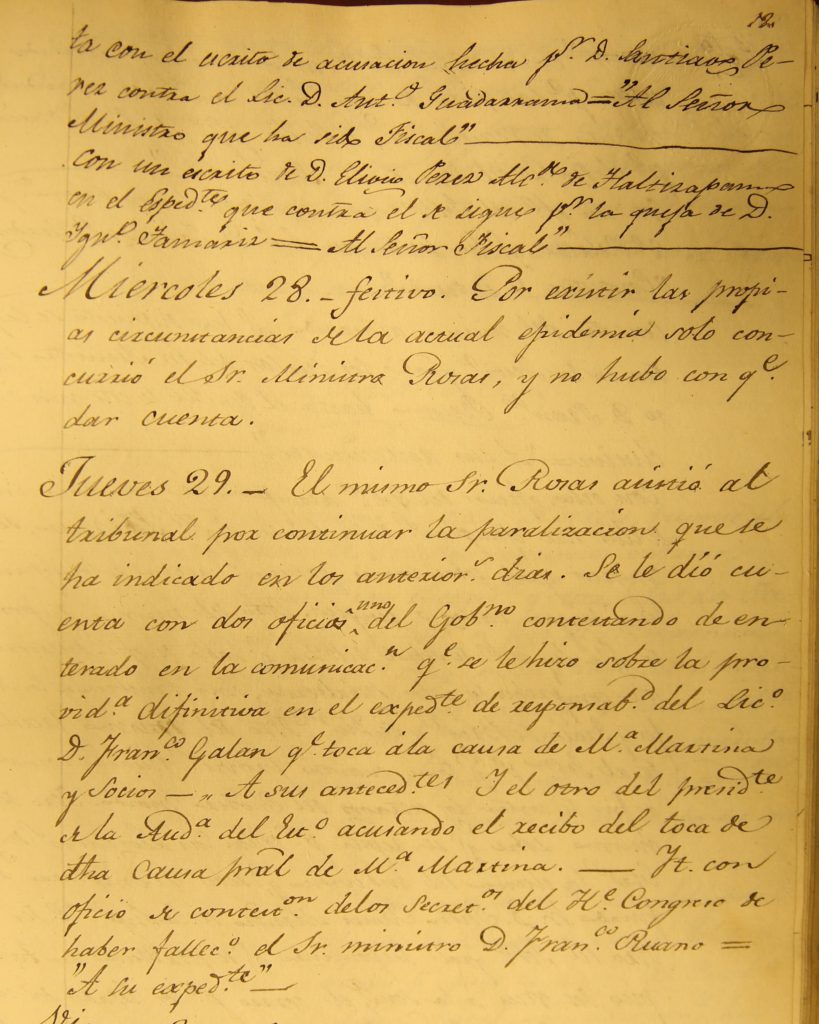 12.
ta con el escrito de acusacion hecha pr. D. Santiago Pe-
rez contra el Lic. D. Ant.o Guadarrama = "Al Señor
Ministro que ha sido Fiscal"
Con un escrito de D. Elivio Perez Alc.de de Tlaltizapam
en el Esped.te que contra el se sigue pr. la queja de D.
Ign.o Tamariz = Al Señor Fiscal"
Miercoles 28. - festivo. Por existir las propi-
as circunstancias de la actual epidemia solo con-
currió el Sr. Ministro Rosas, y no hubo con q.e
dar cuenta.
Jueves 29. - El mismo Sr. Rosas asistió al
tribunal por continuar la paralizacion que se
ha indicado en los anterior.s dias. Se le dió cu-
enta con dos oficios uno del Gob.no contestando de en-
terado en la comunicac.n q.e se le hizo sobre la pro-
vid.a difinitiva en el exped.te de responsab.d del Lic.o
D. Fran.co Galan q.e toca á la causa de M.a Martina
y Socios - „ A sus anteced.tes Y el otro del presid.te
de la Aud.a del Est.o acusando el recibo del toca de
dha Causa pral de M.a Martina. — Yt. con
oficio de contest.on de los Secret.os del H.e Congreso de
haber fallec.o el Sr. ministro D. Fran.co Ruano =
"A su exped.te" —
Vi